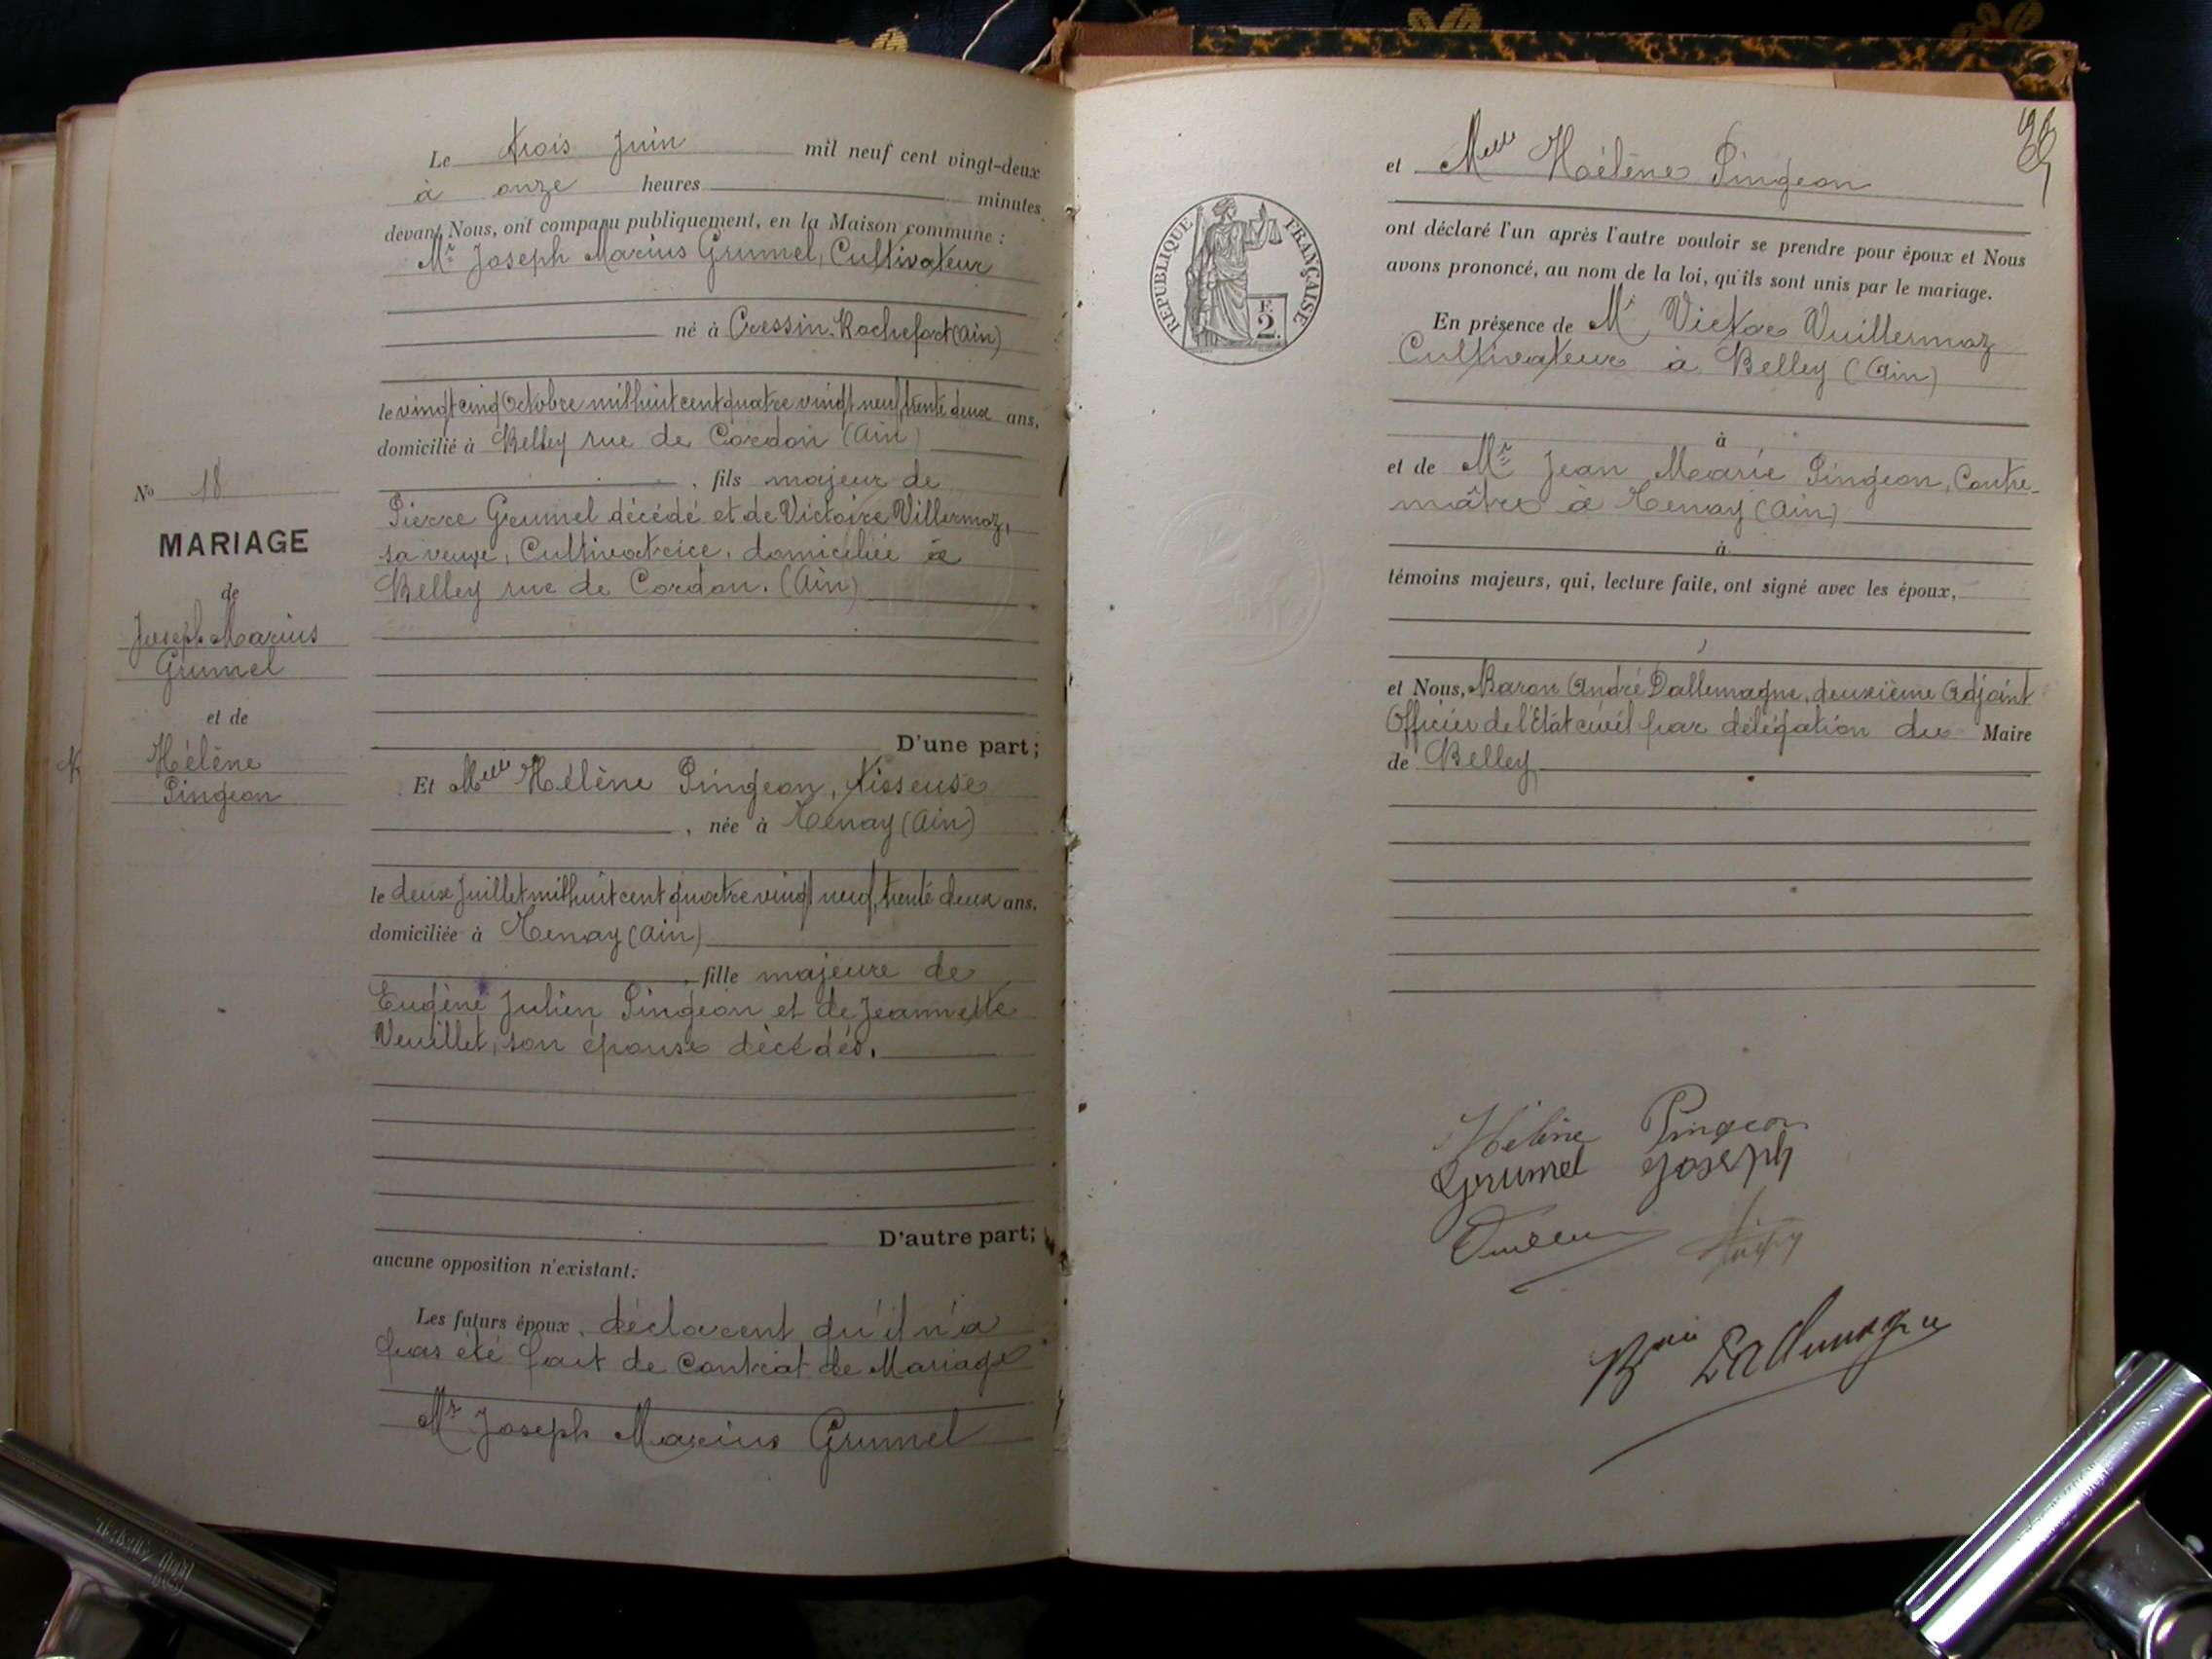 Le trois Juin mil neuf cent vingt-deux
à onze heures minutes
devant Nous, ont comparu publiquement, en la Maison commune :
Mr Joseph Marius Grumel, Cultivateur
né à Cressin-Rochefort (Ain)
le vingt cinq Octobre mil huit cent quatre vingt neuf, trente deux ans,
domicilié à Belley rue de Cordon (Ain)
, fils majeur de
Pierre Grumel décédé et de Victoire Villermoz,
sa veuve, Cultivatrice, domiciliée à
Belley rue de Cordon. (Ain)
D'une part;
No 18
MARIAGE
de
Joseph Marius
Grumel
et de
Hélène
Pingeon
Et Melle Hélène Pingeon, tisseuse
, née à Tenay (Ain)
le deux Juillet mil huit cent quatre vingt neuf, trente deux ans,
domiciliée à Tenay (Ain)
, fille majeure de
Eugène Julien Pingeon et de Jeannette
Veuillet, son épouse décédés.
D'autre part;
aucune opposition n'existant.
Les futurs époux, déclarent qu'il n'a
pas été fait de Contrat de Mariage
Mr Joseph Marius Grumel
et Melle Hélène Pingeon
REPUBLIQUE FRANÇAISE
F.
2.
ont déclaré l'un après l'autre vouloir se prendre pour époux et Nous
avons prononcé, au nom de la loi, qu'ils sont unis par le mariage.
En présence de Mr Victor Vuillermoz
Cultivateur à Belley (Ain)
à
et de Mr Jean Marie Pingeon, Contre-
mâtre à Tenay (Ain)
à
témoins majeurs, qui, lecture faite, ont signé avec les époux,
,
et Nous, Baron André Dallemagne, deuxième Adjoint
Officier de l'Etat civil par délégation du Maire
de Belley
Hélène Pingeon
Grumel Joseph
Bon Dallemagne